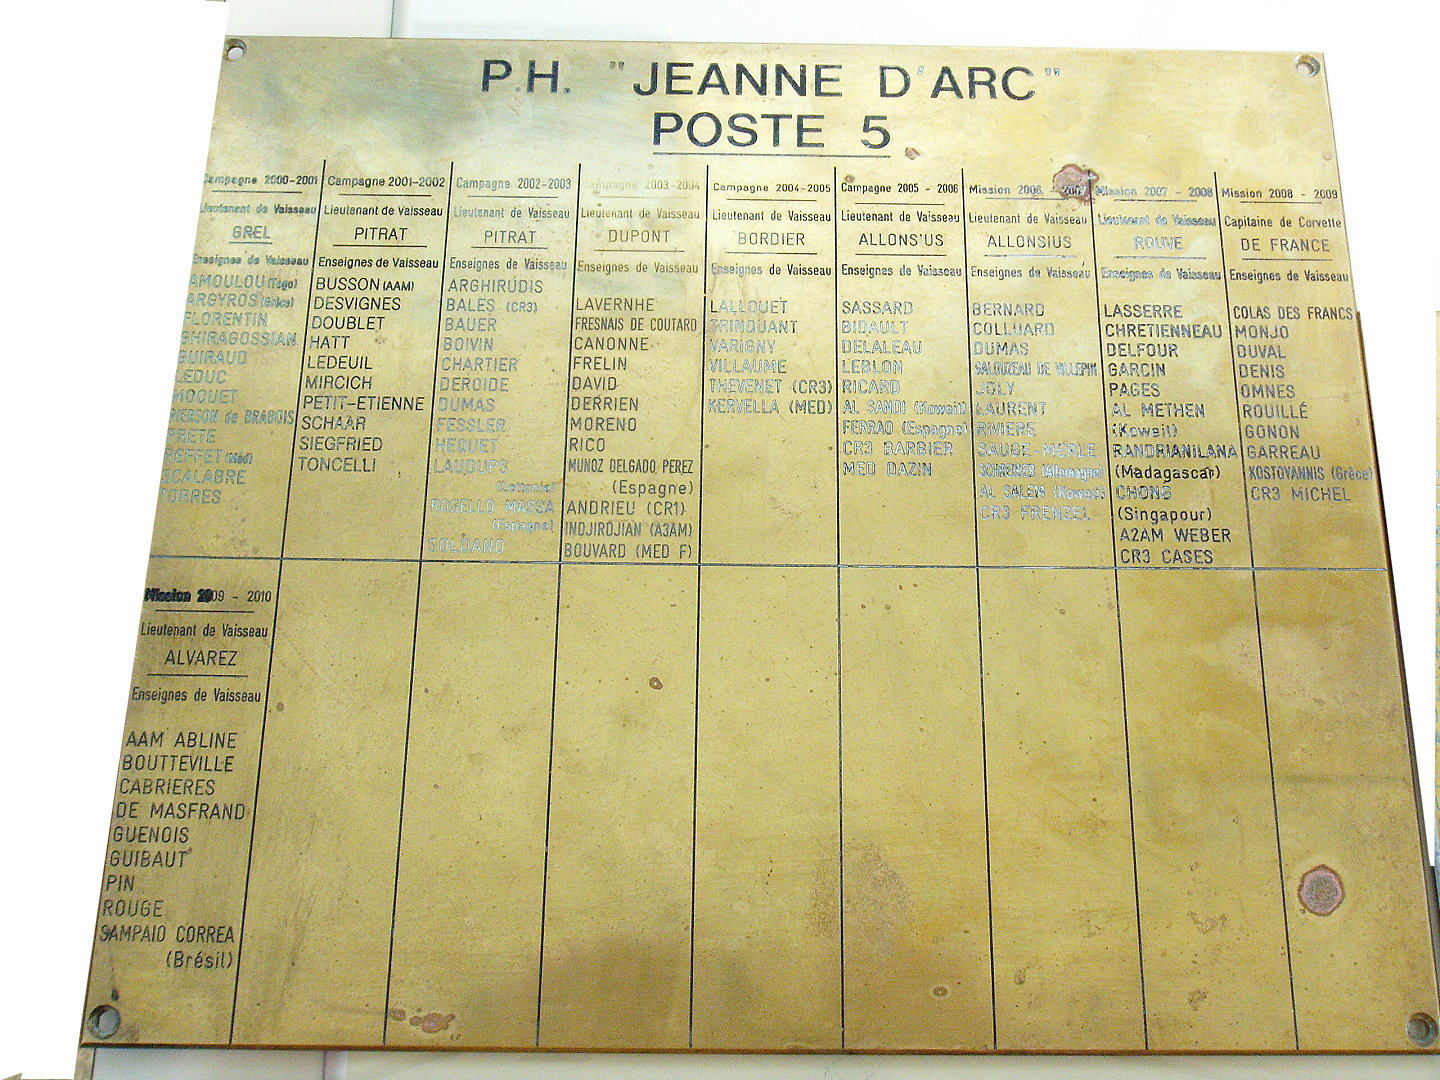 P.H. "JEANNE D'ARC"
POSTE 5
Campagne 2000-2001
Lieutenant de Vaisseau
GREL
Enseignes de Vaisseau
AMOULOU (Togo)
ARGYROS (Grèce)
FLORENTIN
GHIRAGOSSIAN
GUIRAUD
LEDUC
MOQUET
PIERSON de BRABOIS
PRETE
REFFET (Méd)
SCALABRE
TORRES
Campagne 2001-2002
Lieutenant de Vaisseau
PITRAT
Enseignes de Vaisseau
BUSSON (AAM)
DESVIGNES
DOUBLET
HATT
LEDEUIL
MIRCICH
PETIT-ETIENNE
SCHAAR
SIEGFRIED
TONCELLI
Campagne 2002-2003
Lieutenant de Vaisseau
PITRAT
Enseignes de Vaisseau
ARGHIRUDIS
BALES (CR3)
BAUER
BOIVIN
CHARTIER
DEROIDE
DUMAS
FESSLER
HEQUET
LAUDUPS
(Lettonie)
ROSELLO MASSA
(Espagne)
SOLDANO
Campagne 2003-2004
Lieutenant de Vaisseau
DUPONT
Enseignes de Vaisseau
LAVERNHE
FRESNAIS DE COUTARD
CANONNE
FRELIN
DAVID
DERRIEN
MORENO
RICO
MUNOZ DELGADO PEREZ
(Espagne)
ANDRIEU (CR1)
INDJIRDJIAN (A3AM)
BOUVARD (MED F)
Campagne 2004-2005
Lieutenant de Vaisseau
BORDIER
Enseignes de Vaisseau
LALLOUET
TRINQUANT
VARIGNY
VILLAUME
THEVENET (CR3)
KERVELLA (MED)
Campagne 2005 - 2006
Lieutenant de Vaisseau
ALLONS'US
Enseignes de Vaisseau
SASSARD
BIDAULT
DELALEAU
LEBLON
RICARD
AL SANDI (Koweit)
FERRAO (Espagne)
CR3 BARBIER
MED DAZIN
Mission 2006 - 2007
Lieutenant de Vaisseau
ALLONSIUS
Enseignes de Vaisseau
BERNARD
COLLUARD
DUMAS
GALOUZEAU DE VILLEPIN
JOLY
LAURENT
RIVIERE
SAUGE-MERLE
(Allemagne)
AL SALEM (Koweit)
CR3 FRENZEL
Mission 2007 - 2008
Lieutenant de Vaisseau
ROUVE
Enseignes de Vaisseau
LASSERRE
CHRETIENNEAU
DELFOUR
GARCIN
PAGES
AL METHEN
(Koweit)
RANDRIANILANA
(Madagascar)
CHONG
(Singapour)
A2AM WEBER
CR3 CASES
Mission 2008 - 2009
Capitaine de Corvette
DE FRANCE
Enseignes de Vaisseau
COLAS DES FRANCS
MONJO
DUVAL
DENIS
OMNES
ROUILLÉ
GONON
GARREAU
KOSTOVANNIS (Grèce)
CR3 MICHEL
Mission 2009 - 2010
Lieutenant de Vaisseau
ALVAREZ
Enseignes de Vaisseau
AAM ABLINE
BOUTTEVILLE
CABRIERES
DE MASFRAND
GUENOIS
GUIBAUT
PIN
ROUGE
SAMPAIO CORREA
(Brésil)